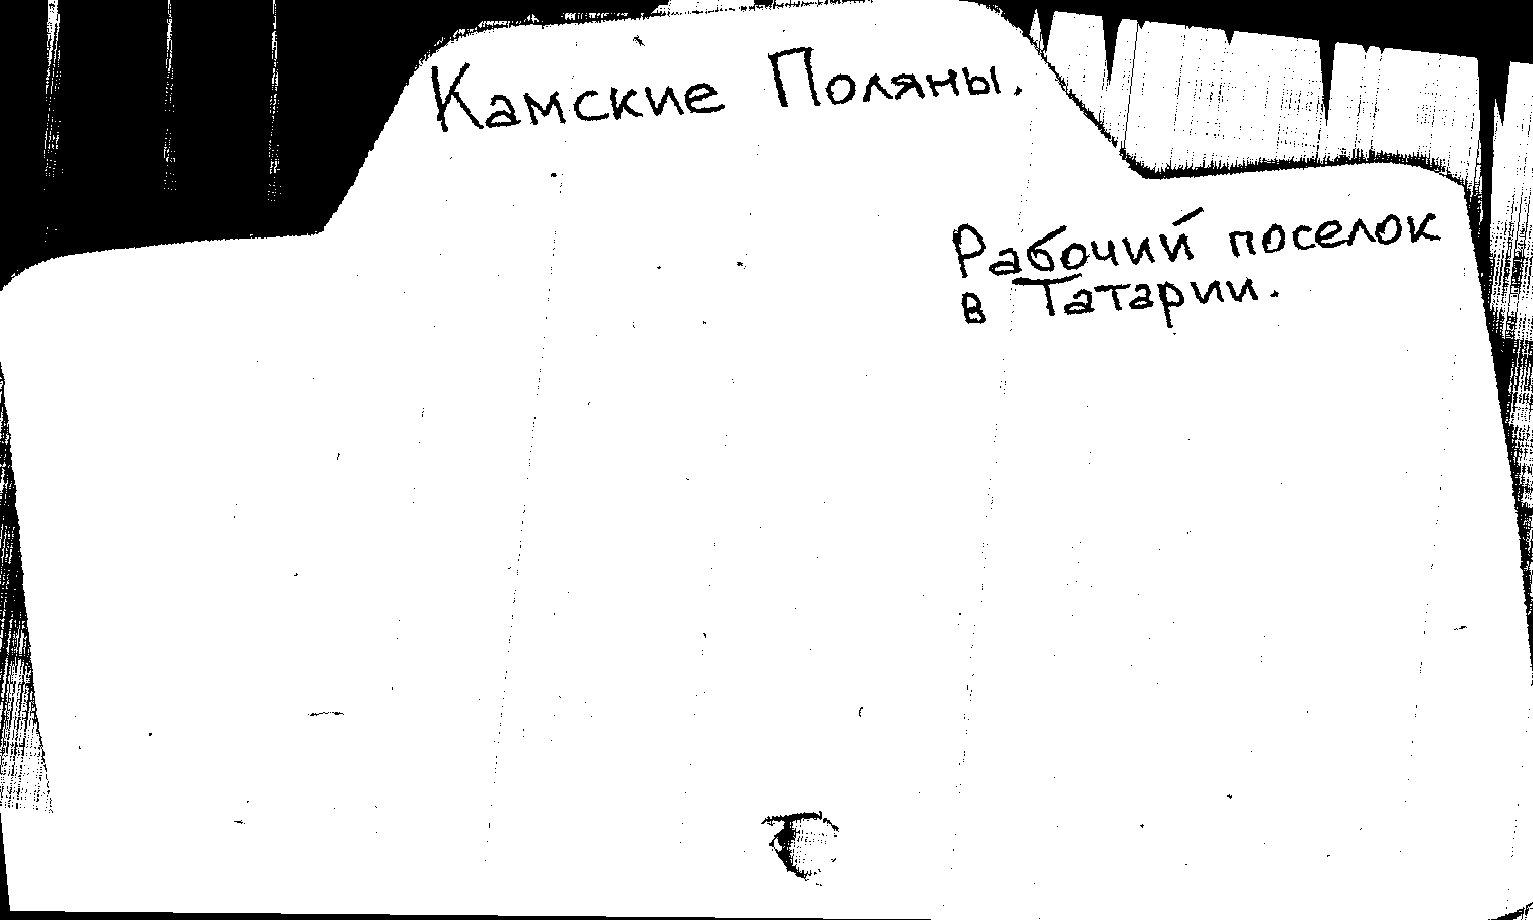 Камские Поляны.
Рабочий поселок
в Татарии.